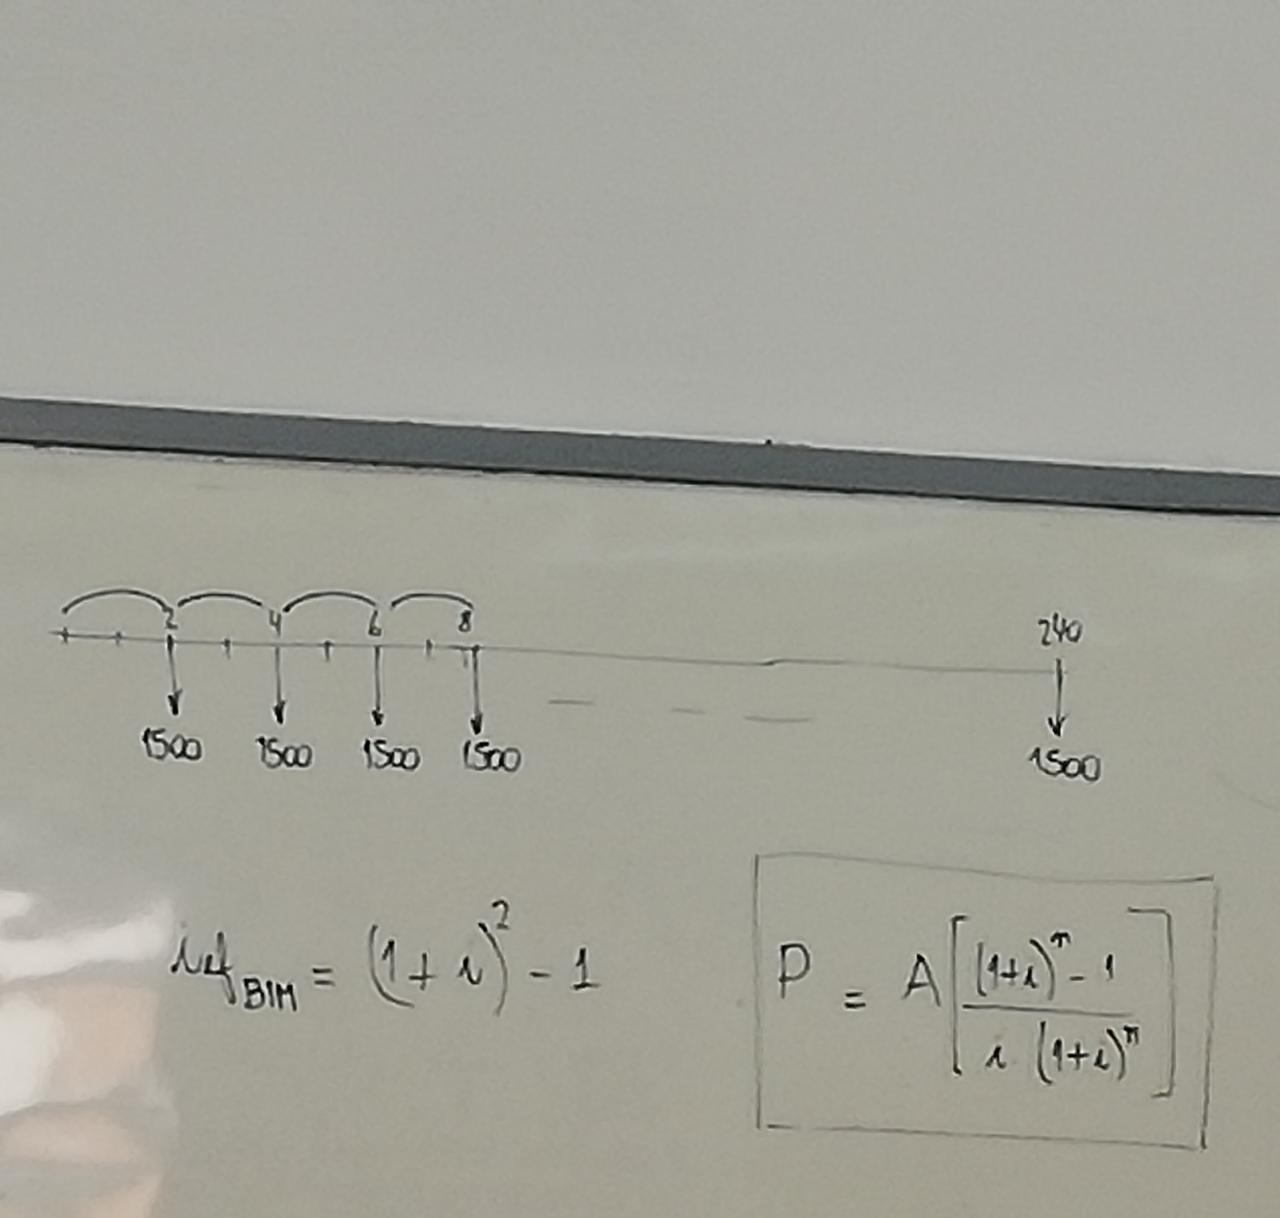 2 4 6 8 240
1500 1500 1500 1500 1500
ief_BIM = (1+i)^2 - 1
P = A[((1+i)^n - 1)/(i · (1+i)^n)]